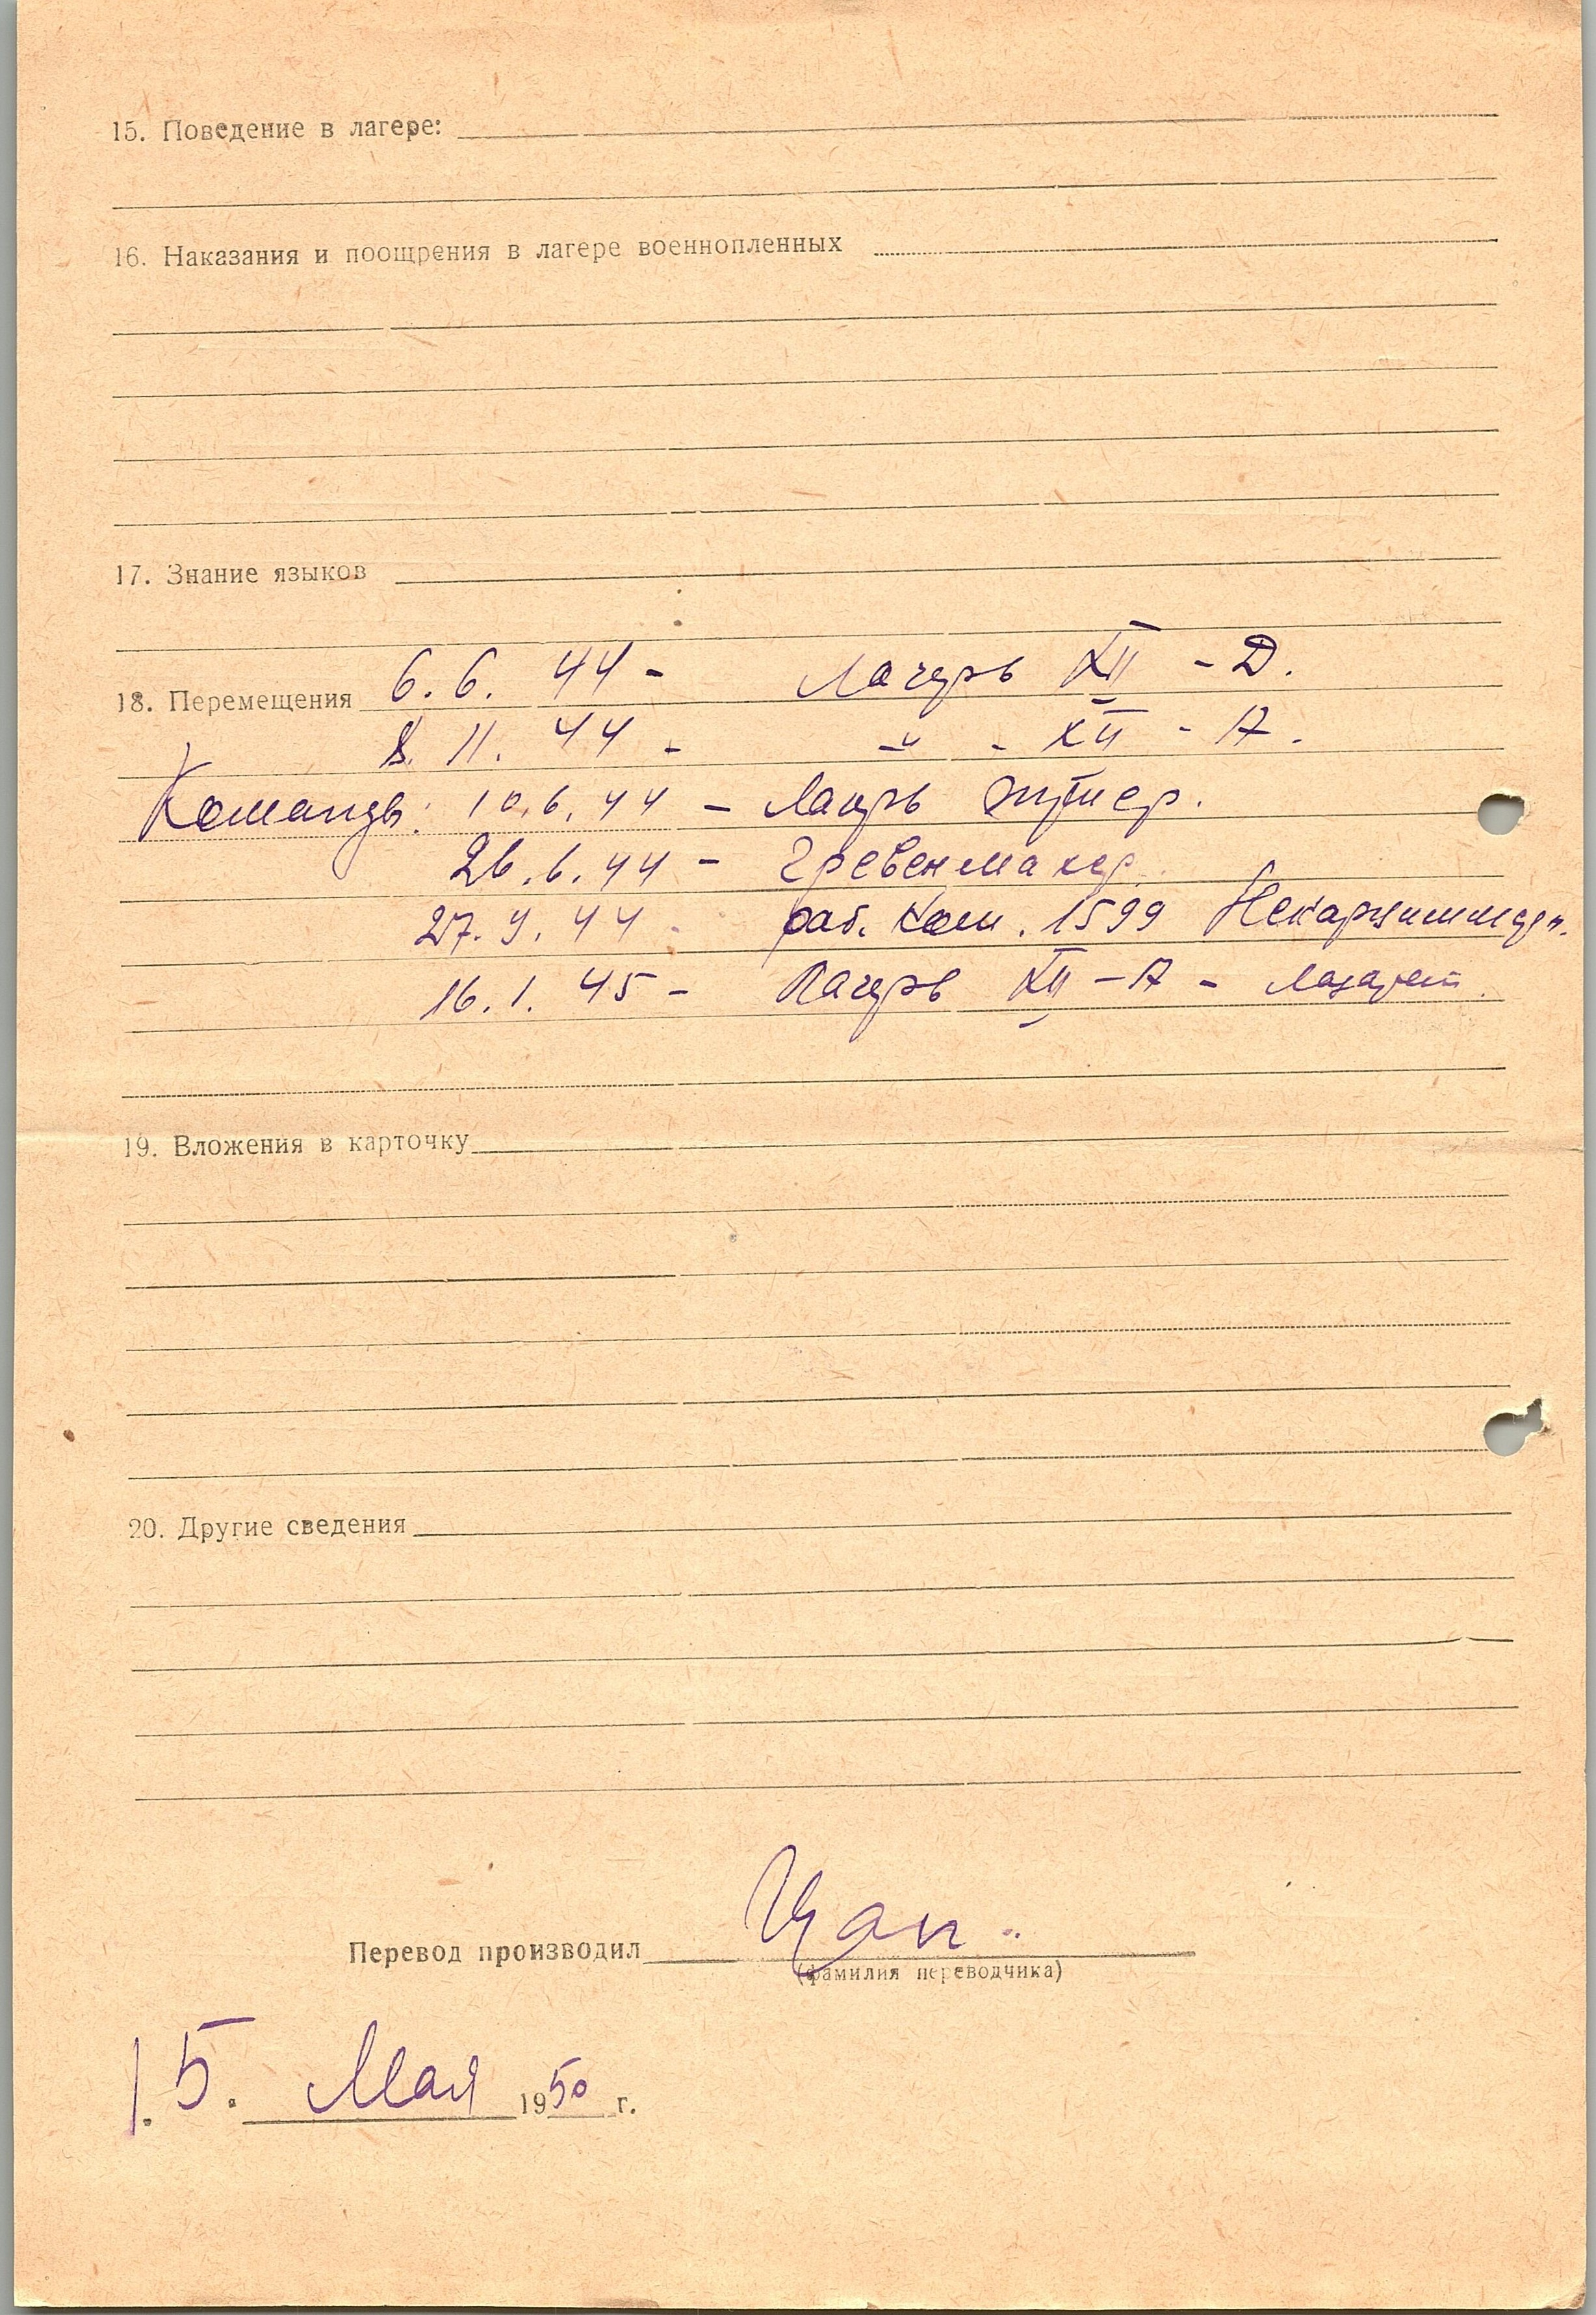 15. Поведение в лагере:
16. Наказания и поощрения в лагере военнопленных
17. Знание языков
18. Перемещения 6.6.44 - Лагерь XII - Д.
8.11.44 - -"- - XII - А.
Команды: 10.6.44 - Лагерь
26.6.44 - Гревенмахер.
27.9.44 - раб. Ком. 1599
16.1.45 - Лагерь XII - А - Лазарет.
19. Вложения в карточку
20. Другие сведения
Перевод производил Цап.
(фамилия переводчика)
15. Мая 1950 г.